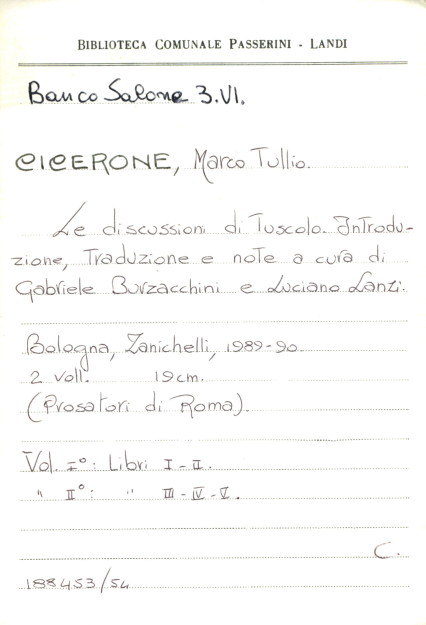 BIBLIOTECA COMUNALE PASSERINI - LANDI
Banco Salone 3.VI.
CICERONE, Marco Tullio.
Le discussioni di Tuscolo. Introdu-
zione, Traduzione e note a cura di
Gabriele Burzacchini e Luciano Lanzi.
Bologna, Zanichelli, 1989-90.
2 voll. 19 cm.
(Prosatori di Roma).
Vol. I°: Libri I - II.
" II°: " III - IV - V.
C.
188453/54